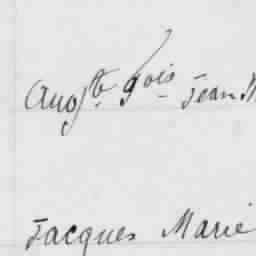 Aug.te f.ois Jean M
Jacques Marie